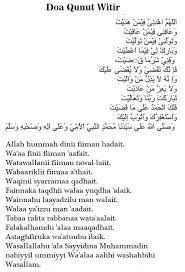 Doa Qunut Witir
اَللّٰهُمَّ اهْدِنِيْ فِيْمَنْ هَدَيْتَ
وَعَافِنِيْ فِيْمَنْ عَافَيْتَ
وَتَوَلَّنِيْ فِيْمَنْ تَوَلَّيْتَ
وَبَارِكْ لِيْ فِيْمَا اَعْطَيْتَ
وَقِنِيْ شَرَّمَا قَضَيْتَ
فَاِنَّكَ تَقْضِيْ وَلَا يُقْضَى عَلَيْكَ
وَاِنَّهُ لَا يَذِلُّ مَنْ وَالَيْتَ
وَلَا يَعِزُّ مَنْ عَادَيْتَ
تَبَارَكْتَ رَبَّنَا وَتَعَالَيْتَ
فَلَكَ الْحَمْدُ عَلَى مَا قَضَيْتَ
وَاَسْتَغْفِرُكَ وَاَتُوْبُ اِلَيْكَ
وَصَلَّى اللهُ عَلَى سَيِّدِنَا مُحَمَّدٍ النَّبِيِّ الْاُمِّيِّ وَعَلَى اٰلِهِ وَصَحْبِهِ وَسَلَّمَ
Allah hummah dinii fiiman hadait.
Wa'aa finii fiiman 'aafait.
Watawallanii fiiman tawal-laiit.
Wabaariklii fiimaa a'thait.
Waqinii syarramaa qadhait.
Fainnaka taqdhii walaa yuqdha 'alaik.
Wainnahu laayadzilu man walait.
Walaa ya'izzu man 'aadait.
Tabaa rakta rabbanaa wata'aalait.
Falakalhamdu 'alaa maaqadhait.
Astaghfiruka wa'atuubu ilaik.
Wasallallahu 'ala Sayyidina Muhammadin
nabiyyil ummiyyi Wa'alaa aalihi washahbihi
Wasallam.